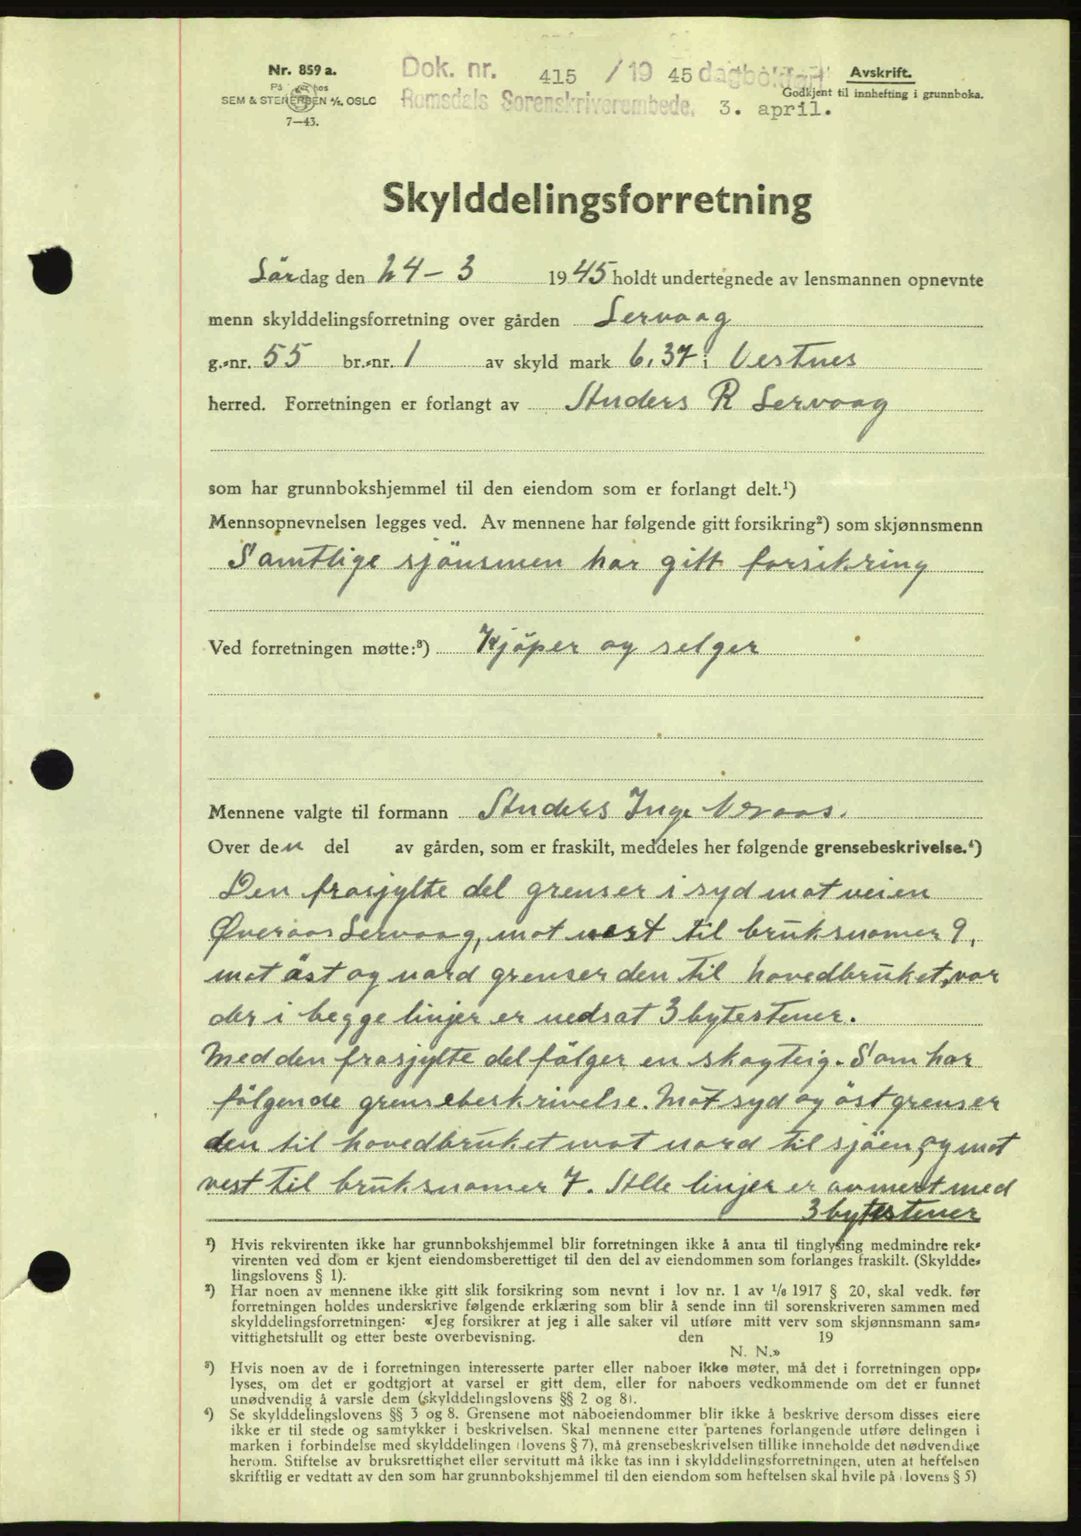 Nr. 859 a.
På hos
SEM & STENERSEN A/S. OSLO
7—43.
Dok. nr. 415 / 19 45 dagbokført
Romsdals Sorenskriverembede. 3. april.
Avskrift.
Godkjent til innhefting i grunnboka.
Skylddelingsforretning
Lördag den 24 – 3 1945 holdt undertegnede av lensmannen opnevnte
menn skylddelingsforretning over gården Servaag
g.-nr. 55 br.-nr. 1 av skyld mark 6.37 i Vestnes
herred. Forretningen er forlangt av Anders R Servaag
som har grunnbokshjemmel til den eiendom som er forlangt delt.¹)
Mennsopnevnelsen legges ved. Av mennene har følgende gitt forsikring²) som skjønnsmenn
Samtlige sjönsmen har gitt forsikring
Ved forretningen møtte:³) Kjöper og selger
Mennene valgte til formann Anders Inge
Over den del av gården, som er fraskilt, meddeles her følgende grensebeskrivelse.⁴)
Den frasjylte del grenser i syd mot veien
Øveraas Servaag, mot vest til bruksnomer 9,
mot öst og nord grenser den til hovedbruket, vor
der i begge linjer er nedsat 3 bytestener.
Med den frasjylte del fölger en skogteig. Som har
fölgende grensebeskrivelse. Mot syd og öst grenser
den til hovedbruket mot nord til sjöen, og mot
vest til bruksnomer 7. Alle linjer er avmert med
3 bytestener
¹) Hvis rekvirenten ikke har grunnbokshjemmel blir forretningen ikke å anta til tinglysing medmindre rek-
virenten ved dom er kjent eiendomsberettiget til den del av eiendommen som forlanges fraskilt. (Skyldde-
lingslovens § 1).
²) Har noen av mennene ikke gitt slik forsikring som nevnt i lov nr. 1 av 1/6 1917 § 20, skal vedk. før
forretningen holdes underskrive følgende erklæring som blir å sende inn til sorenskriveren sammen med
skylddelingsforretningen: «Jeg forsikrer at jeg i alle saker vil utføre mitt verv som skjønnsmann sam-
vittighetsfullt og etter beste overbevisning. den 19
N. N.»
³) Hvis noen av de i forretningen interesserte parter eller naboer ikke møter, må det i forretningen opp-
lyses, om det er godtgjort at varsel er gitt dem, eller for naboers vedkommende om det er funnet
unødvendig å varsle dem (skylddelingslovens §§ 2 og 8).
⁴) Se skylddelingslovens §§ 3 og 8. Grensene mot naboeiendommer blir ikke å beskrive dersom disses eiere
ikke er til stede og samtykker i beskrivelsen. Skal mennene etter partenes forlangende utføre delingen i
marken i forbindelse med skylddelingen (lovens § 7), må grensebeskrivelsen tillike inneholde det nødvendige
herom. Stiftelse av bruksrettighet eller servitutt må ikke tas inn i skylddelingsforretningen, uten at heftelsen
skriftlig er vedtatt av den som har grunnbokshjemmel til den eiendom som heftelsen skal hvile på (lovens § 5)